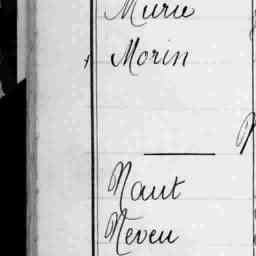 Murie
Morin
N
Naut
Neveu